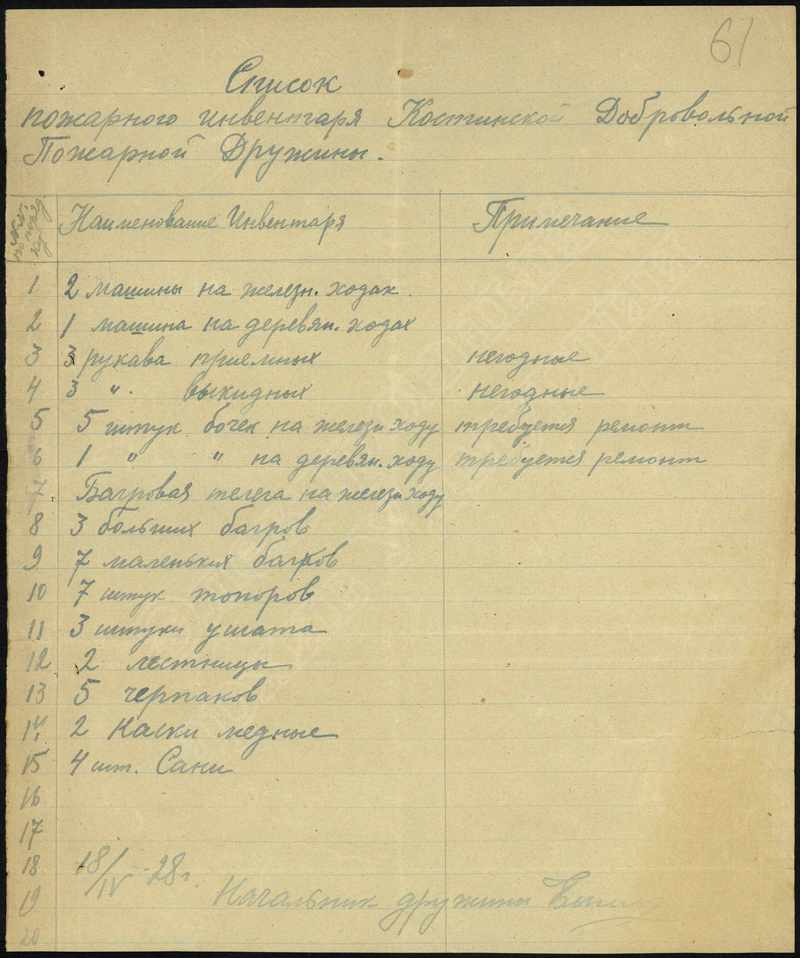 61
Список
пожарного инвентаря Костинской Добровольной
Пожарной Дружины.
Наименование Инвентаря Примечание
1 2 машины на железн. ходах.
2 1 машина на деревян. ходах
3 3 рукава приемных негодные
4 3 " выкидных негодные
5 5 штук бочек на железн ходу требуется ремонт
6 1 " " на деревян. ходу требуется ремонт
7. Багровая телега на железн ходу
8 3 больших багров
9 7 маленьких багров
10 7 штук топоров
11 3 штуки ушата
12 2 лестницы
13 5 черпаков
14 2 Каски медные
15 4 шт. Сани
16
17
18 18/IV-28 г.
19 Начальник дружины
20